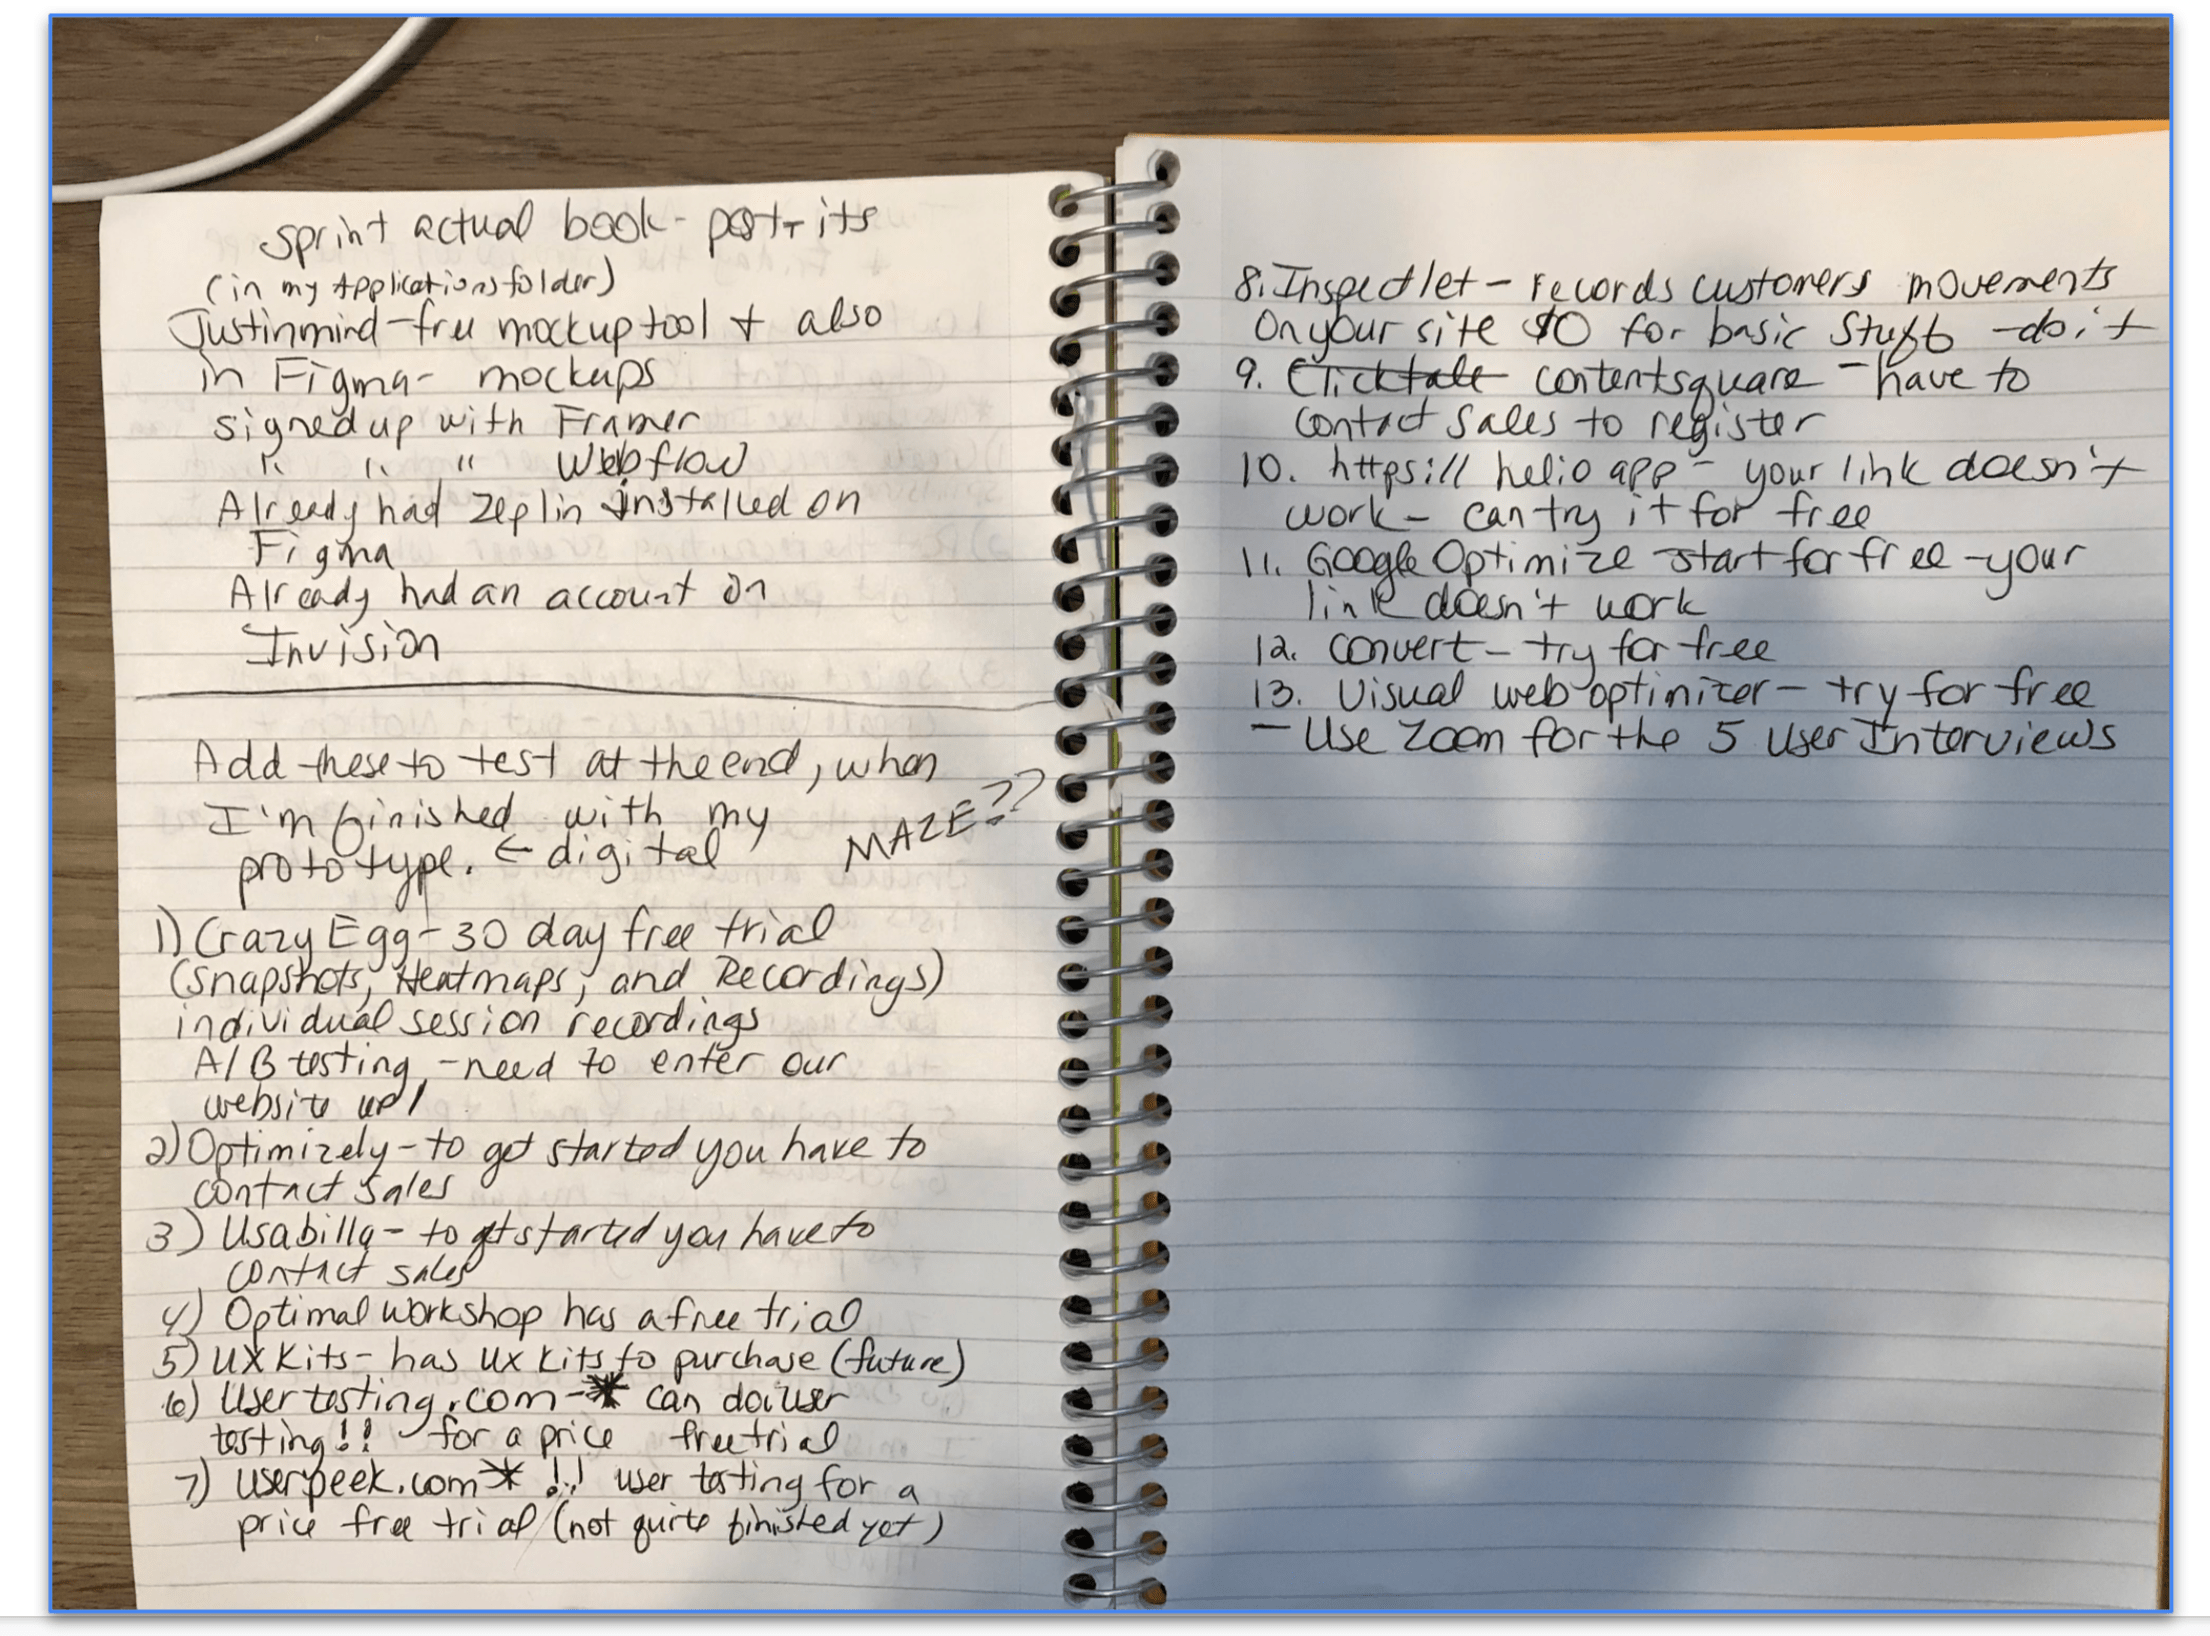 Sprint actual book - post-its
(in my Applications folder)
Justinmind - free mockup tool + also
in Figma - mockups
signed up with Framer
" " " Webflow
Already had Zeplin installed on
Figma
Already had an account on
Invision
Add these to test at the end, when
I'm finished with my
prototype. ← digital
MAZE??
1) Crazy Egg - 30 day free trial
(snapshots, Heatmaps, and Recordings)
individual session recordings
A/B testing - need to enter our
website url
2) Optimizely - to get started you have to
contact sales
3) Usabilla - to get started you have to
contact sales
4) Optimal workshop has a free trial
5) UX Kits - has UX kits to purchase (future)
6) Usertesting.com - * can do user
testing!! for a price free trial
7) userpeek.com * !! user testing for a
price free trial (not quite finished yet)
8. Inspectlet - records customers movements
On your site $0 for basic stuff - do it
9. Clicktale contentsquare - have to
contact sales to register
10. https:// helio app - your link doesn't
work - can try it for free
11. Google Optimize start for free - your
link doesn't work
12. convert - try for free
13. Visual web optimizer - try for free
- Use Zoom for the 5 User Interviews